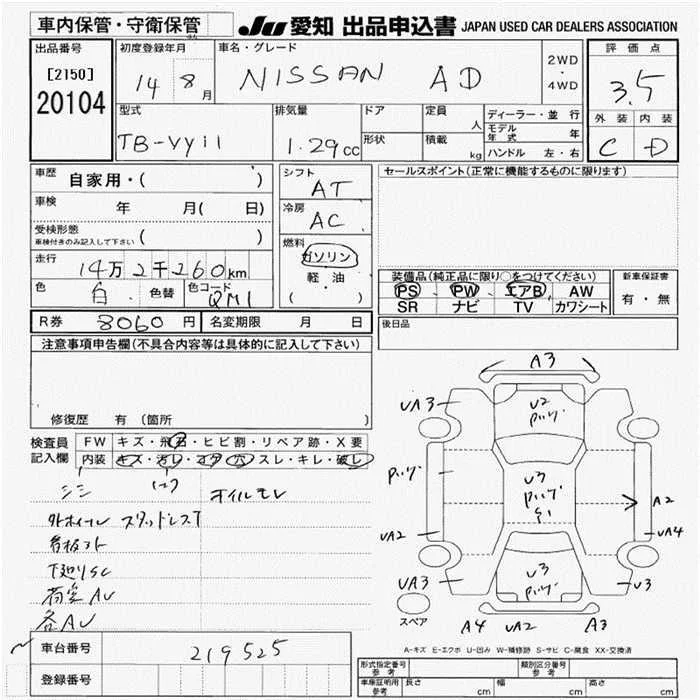 車内保管・守衛保管
JU 愛知 出品申込書 JAPAN USED CAR DEALERS ASSOCIATION
出品番号
[2150]
20104
初度登録年月
14 8月
車名・グレード
NISSAN AD
2WD
・
4WD
評価点
3.5
外装 内装
C D
型式
TB-VY11
排気量
1.29cc
ドア
形状
定員
人
積載
kg
ディーラー・並行
モデル年式 年
ハンドル 左・右
車歴 自家用・( )
車検 年 月( 日)
受検形態
車検付きのみ記入して下さい ( )
走行 14万2千260km
色 白 色替 色コード QM1
シフト
AT
冷房
AC
燃料
ガソリン
・
軽・油
( )
セールスポイント(正常に機能するものに限ります)
装備品(純正品に限り○をつけてください)
PS PW エアB AW
SR ナビ TV カワシート
新車保証書
有・無
R券 8060円 名変期限 月 日
後日品
注意事項申告欄(不具合内容等は具体的に記入して下さい)
修復歴 有 (箇所 )
検査員
記入欄
FW キズ・飛石・ヒビ割・リペア跡・X要
内装 キズ・汚レ・コゲ・穴・スレ・キレ・破レ
シミ
オイルモレ
外ホイール スタッドレス7
看板アト
下廻りSC
荷室AU
各AU
A3
UA3
U2
Pハゲ
Pハゲ
U3
Pハゲ
A2
UA2
UA4
UA3
U3
Pハゲ
U3
スペア
A4 UA2 A3
A-キズ E-エクボ U-凹み W-補修跡 S-サビ C-腐食 XX-交換済
車台番号 219525
登録番号
形式指定番号
参考
類別区分番号
参考
車庫証明用
参考
長さ cm 幅 cm 高さ cm